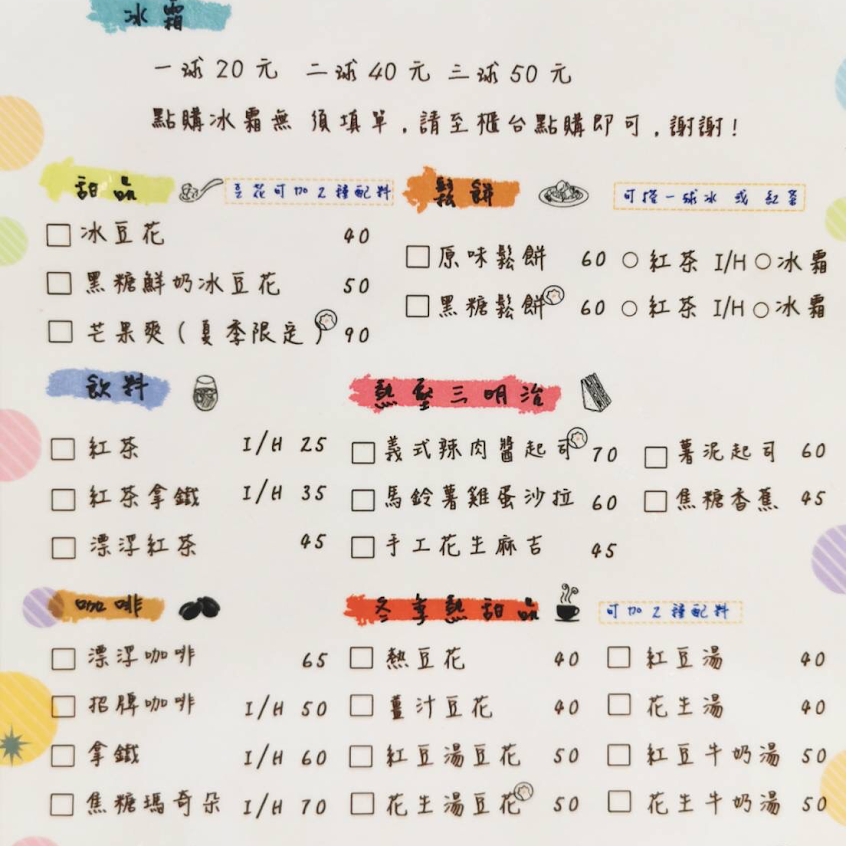 冰霜
一球20元 二球40元 三球50元
點購冰霜無須填單,請至櫃台點購即可,謝謝!
甜品 豆花可加2種配料
冰豆花 40
黑糖鮮奶冰豆花 50
芒果爽(夏季限定) 90
鬆餅 可搭一球冰 或 紅茶
原味鬆餅 60 ○紅茶 I/H ○冰霜
黑糖鬆餅 60 ○紅茶 I/H ○冰霜
飲料
紅茶 I/H 25
紅茶拿鐵 I/H 35
漂浮紅茶 45
熱壓三明治
義式辣肉醬起司 70
馬鈴薯雞蛋沙拉 60
手工花生麻吉 45
薯泥起司 60
焦糖香蕉 45
咖啡
漂浮咖啡 65
招牌咖啡 I/H 50
拿鐵 I/H 60
焦糖瑪奇朵 I/H 70
冬季熱甜品 可加2種配料
熱豆花 40
薑汁豆花 40
紅豆湯豆花 50
花生湯豆花 50
紅豆湯 40
花生湯 40
紅豆牛奶湯 50
花生牛奶湯 50